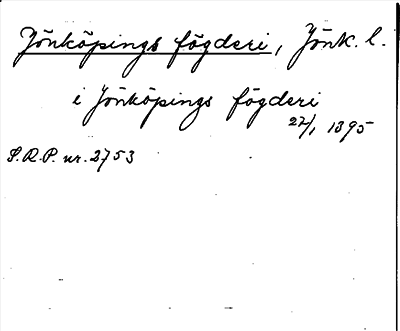 Jönköpings fögderi, Jönk. l.
i Jönköpings fögderi
27/1 1895
S.R.P. nr. 2753